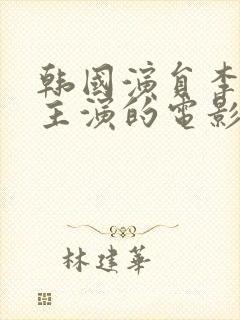 韩國演員李
主演的電影
林建華